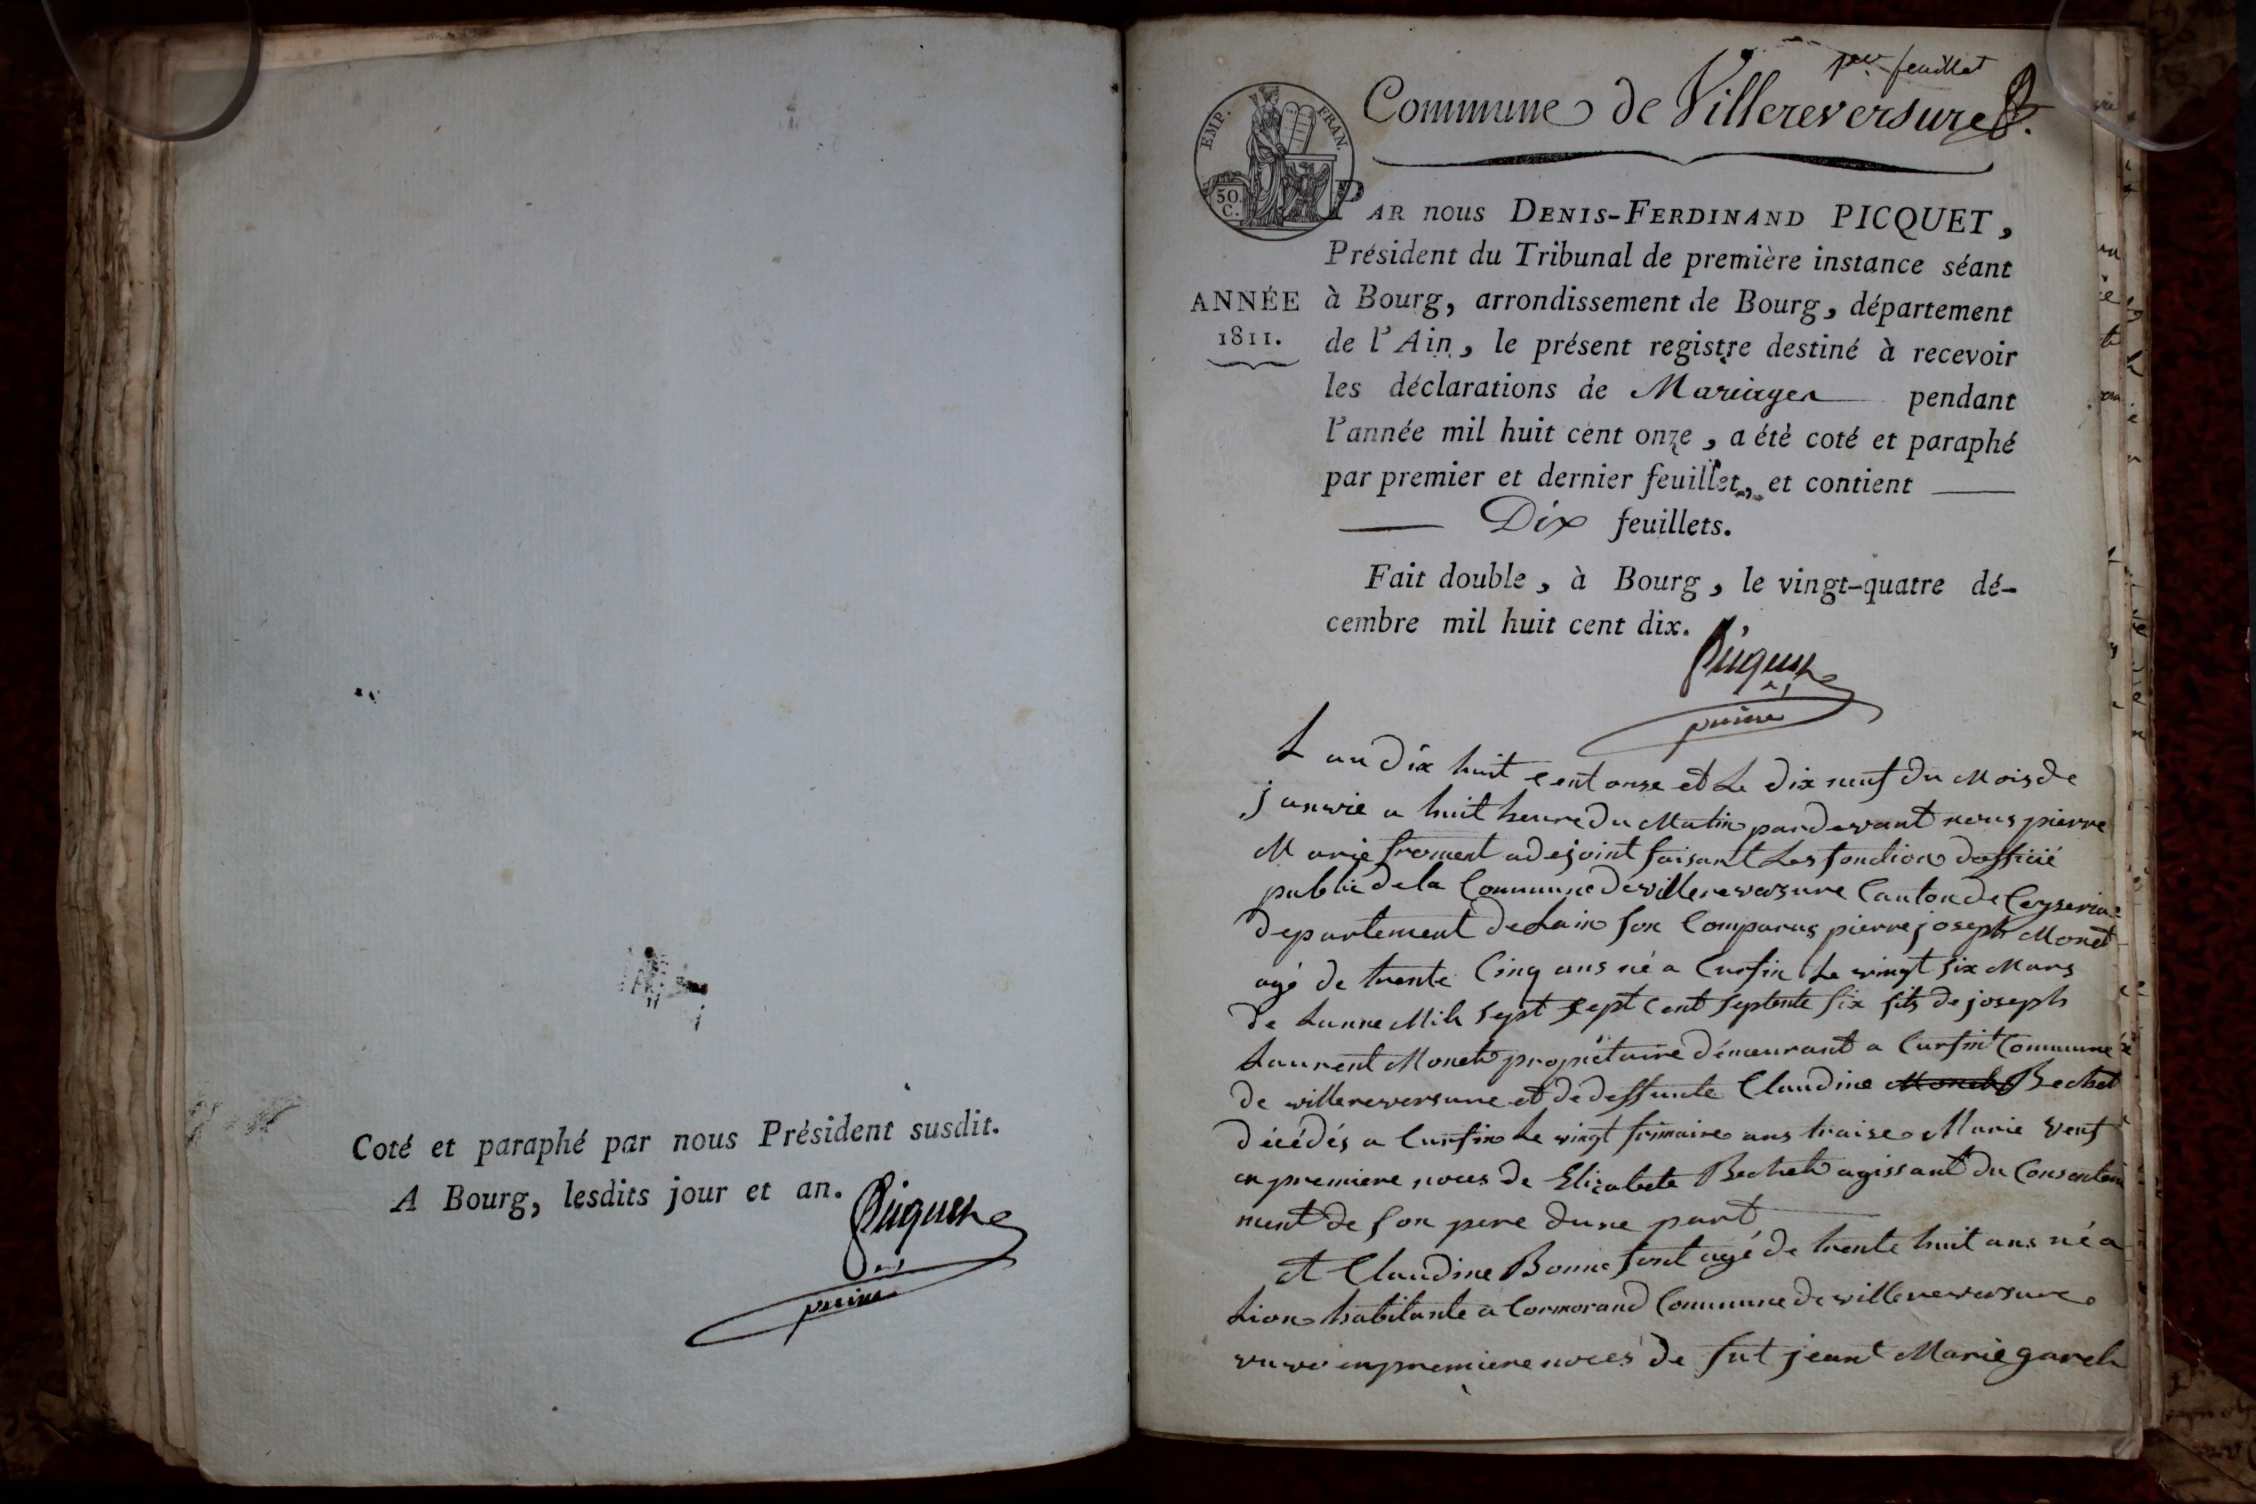 Coté et paraphé par nous Président susdit.
A Bourg, lesdits jour et an.
Picquet
per feuillet
Commune de Villereversure
EMP. FRAN.
50 C.
PAR nous DENIS-FERDINAND PICQUET,
Président du Tribunal de première instance séant
ANNÉE
1811.
à Bourg, arrondissement de Bourg, département
de l'Ain, le présent registre destiné à recevoir
les déclarations de Mariages pendant
l'année mil huit cent onze, a été coté et paraphé
par premier et dernier feuillet, et contient
Dix feuillets.
Fait double, à Bourg, le vingt-quatre dé-
cembre mil huit cent dix.
Picquet
L an dix huit cent onse et Le dix neuf du Mois de
janvie a huit heure du Matin pardevant nous pierre
Marie froment adejoint faisant Les fonction dofficié
public de la Commune de villereversure Canton de Ceyseria
departement de Lain son Comparus pierre joseph Monet
agé de trente Cinq ans né a Cursin Le vingt six Mars
de Lanne Mil sept sept Cent septente six fils de joseph
Laurent Monet propriétaire démeurant a Cursin Commune
de villereversure et de deffunte Claudine Bechet
décédés a Cursin Le vingt frimaire ans traise Marie Veuf
en premiere noces de Elizabete Bechet agissant du Consente
ment de son pere dune part
et Claudine Bonne font agé de trente huit ans né a
Lion habitante a Cormorand Commune de villereversure
vuve en premiere noces de fut jeant Marie garel